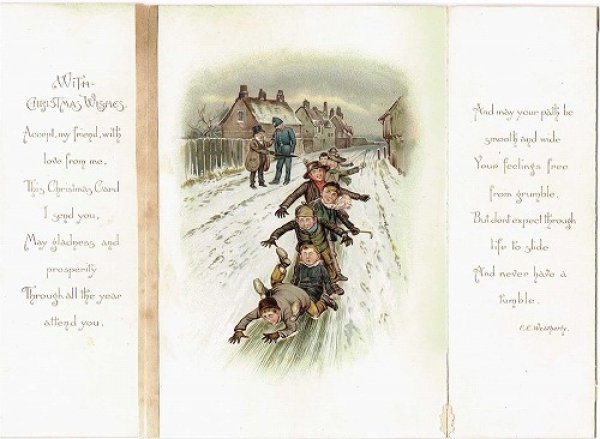 With
Christmas Wishes.
Accept, my friend, with
love from me,
This Christmas Card
I send you,
May gladness and
prosperity
Through all the year
attend you.
And may your path be
smooth and wide
Your feelings free
from grumble,
But dont expect through
life to slide
And never have a
tumble.
F.E. Weatherly.